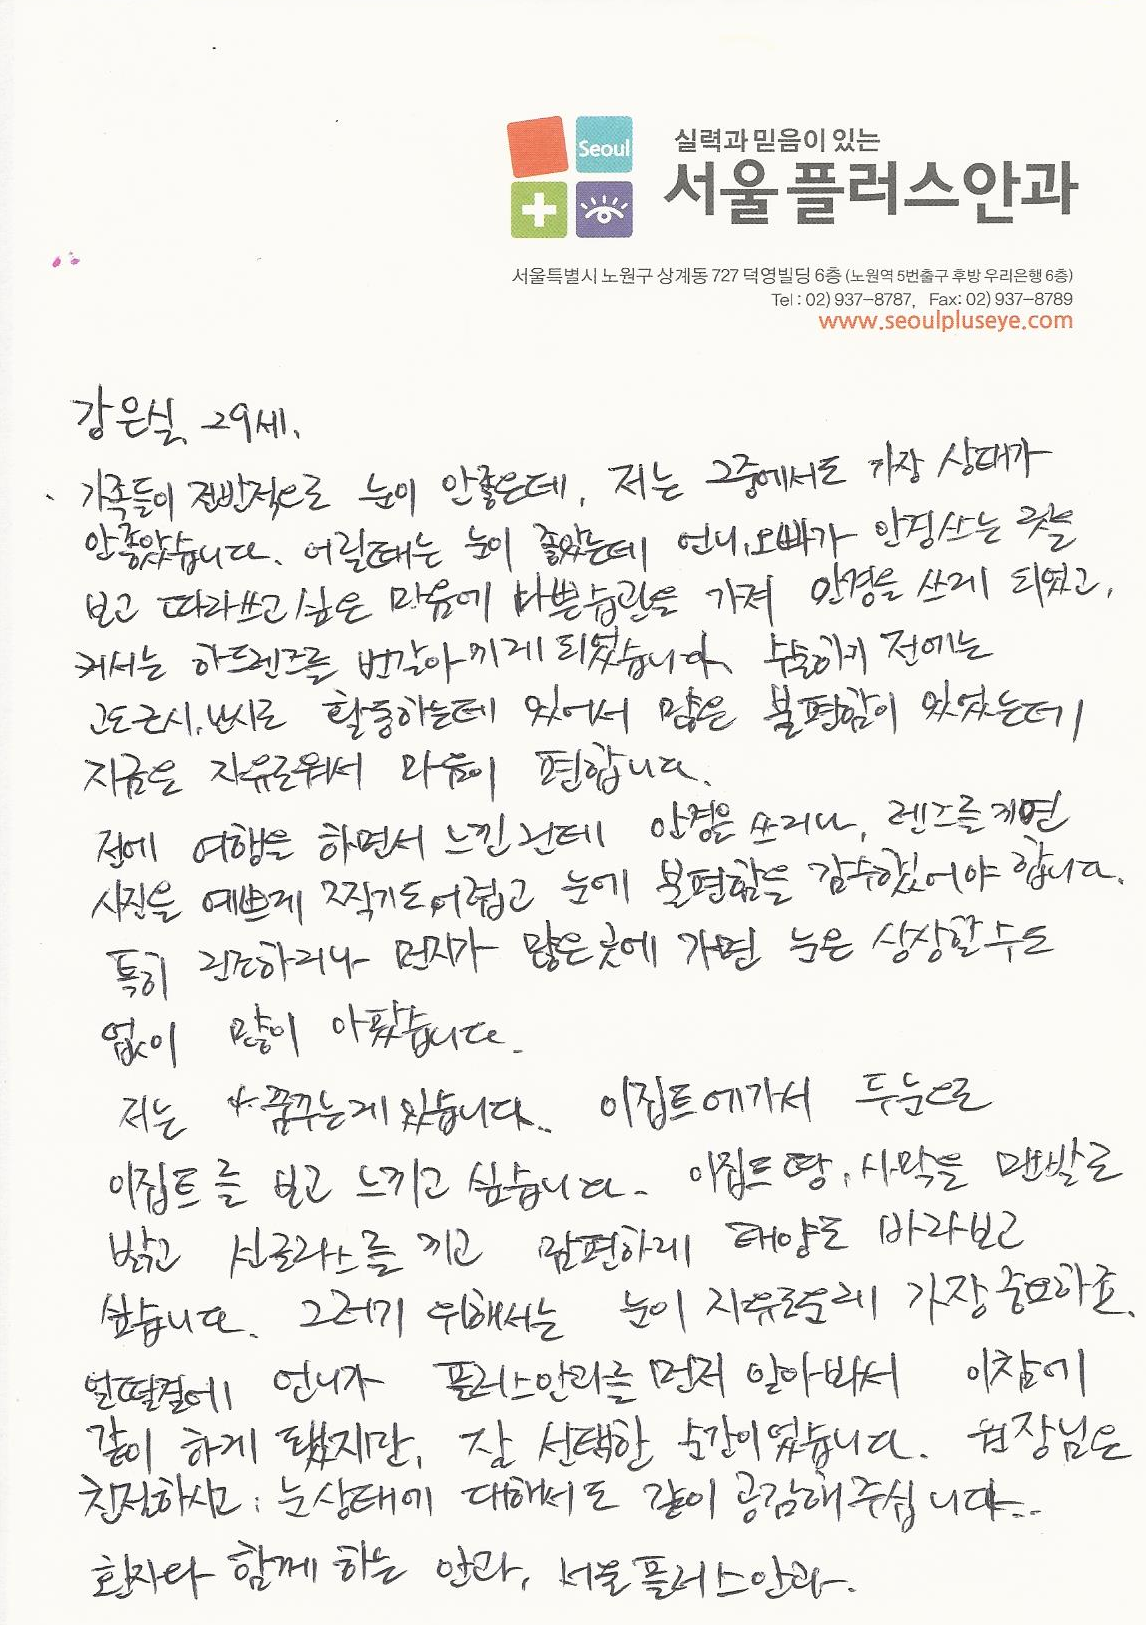 Seoul
실력과 믿음이 있는
서울플러스안과
서울특별시 노원구 상계동 727 덕영빌딩 6층 (노원역 5번출구 후방 우리은행 6층)
Tel : 02) 937-8787, Fax: 02) 937-8789
www.seoulpluseye.com
강은실, 29세.
가족들이 전반적으로 눈이 안좋은데, 저는 그중에서도 가장 상태가
안좋았습니다. 어릴때는 눈이 좋았는데 언니, 오빠가 안경쓰는 것을
보고 따라쓰고 싶은 마음에 나쁜습관을 가져 안경을 쓰게 되었고,
커서는 하드렌즈를 번갈아 끼게 되었습니다. 수술하기 전에는
고도근시, 난시로 활동하는데 있어서 많은 불편함이 있었는데
지금은 자유로워서 마음이 편합니다.
전에 여행을 하면서 느낀건데 안경을 쓰거나, 렌즈를 끼면
사진을 예쁘게 찍기도 어렵고 눈에 불편함을 감수했어야 합니다.
특히 건조하거나 먼지가 많은곳에 가면 눈은 상상할수도
없이 많이 아팠습니다.
저는 꿈꾸는게 있습니다. 이집트에가서 두눈으로
이집트를 보고 느끼고 싶습니다. 이집트 땅, 사막을 맨발로
밟고 선글라스를 끼고 맘편하게 태양도 바라보고
싶습니다. 그러기 위해서는 눈이 자유로운게 가장 중요하죠.
얼떨결에 언니가 플러스안과를 먼저 알아봐서 이참에
같이 하게 됐지만, 잘 선택한 순간이었습니다. 원장님은
친절하시고, 눈상태에 대해서도 같이 공감해주십니다..
환자와 함께 하는 안과, 서울플러스안과.